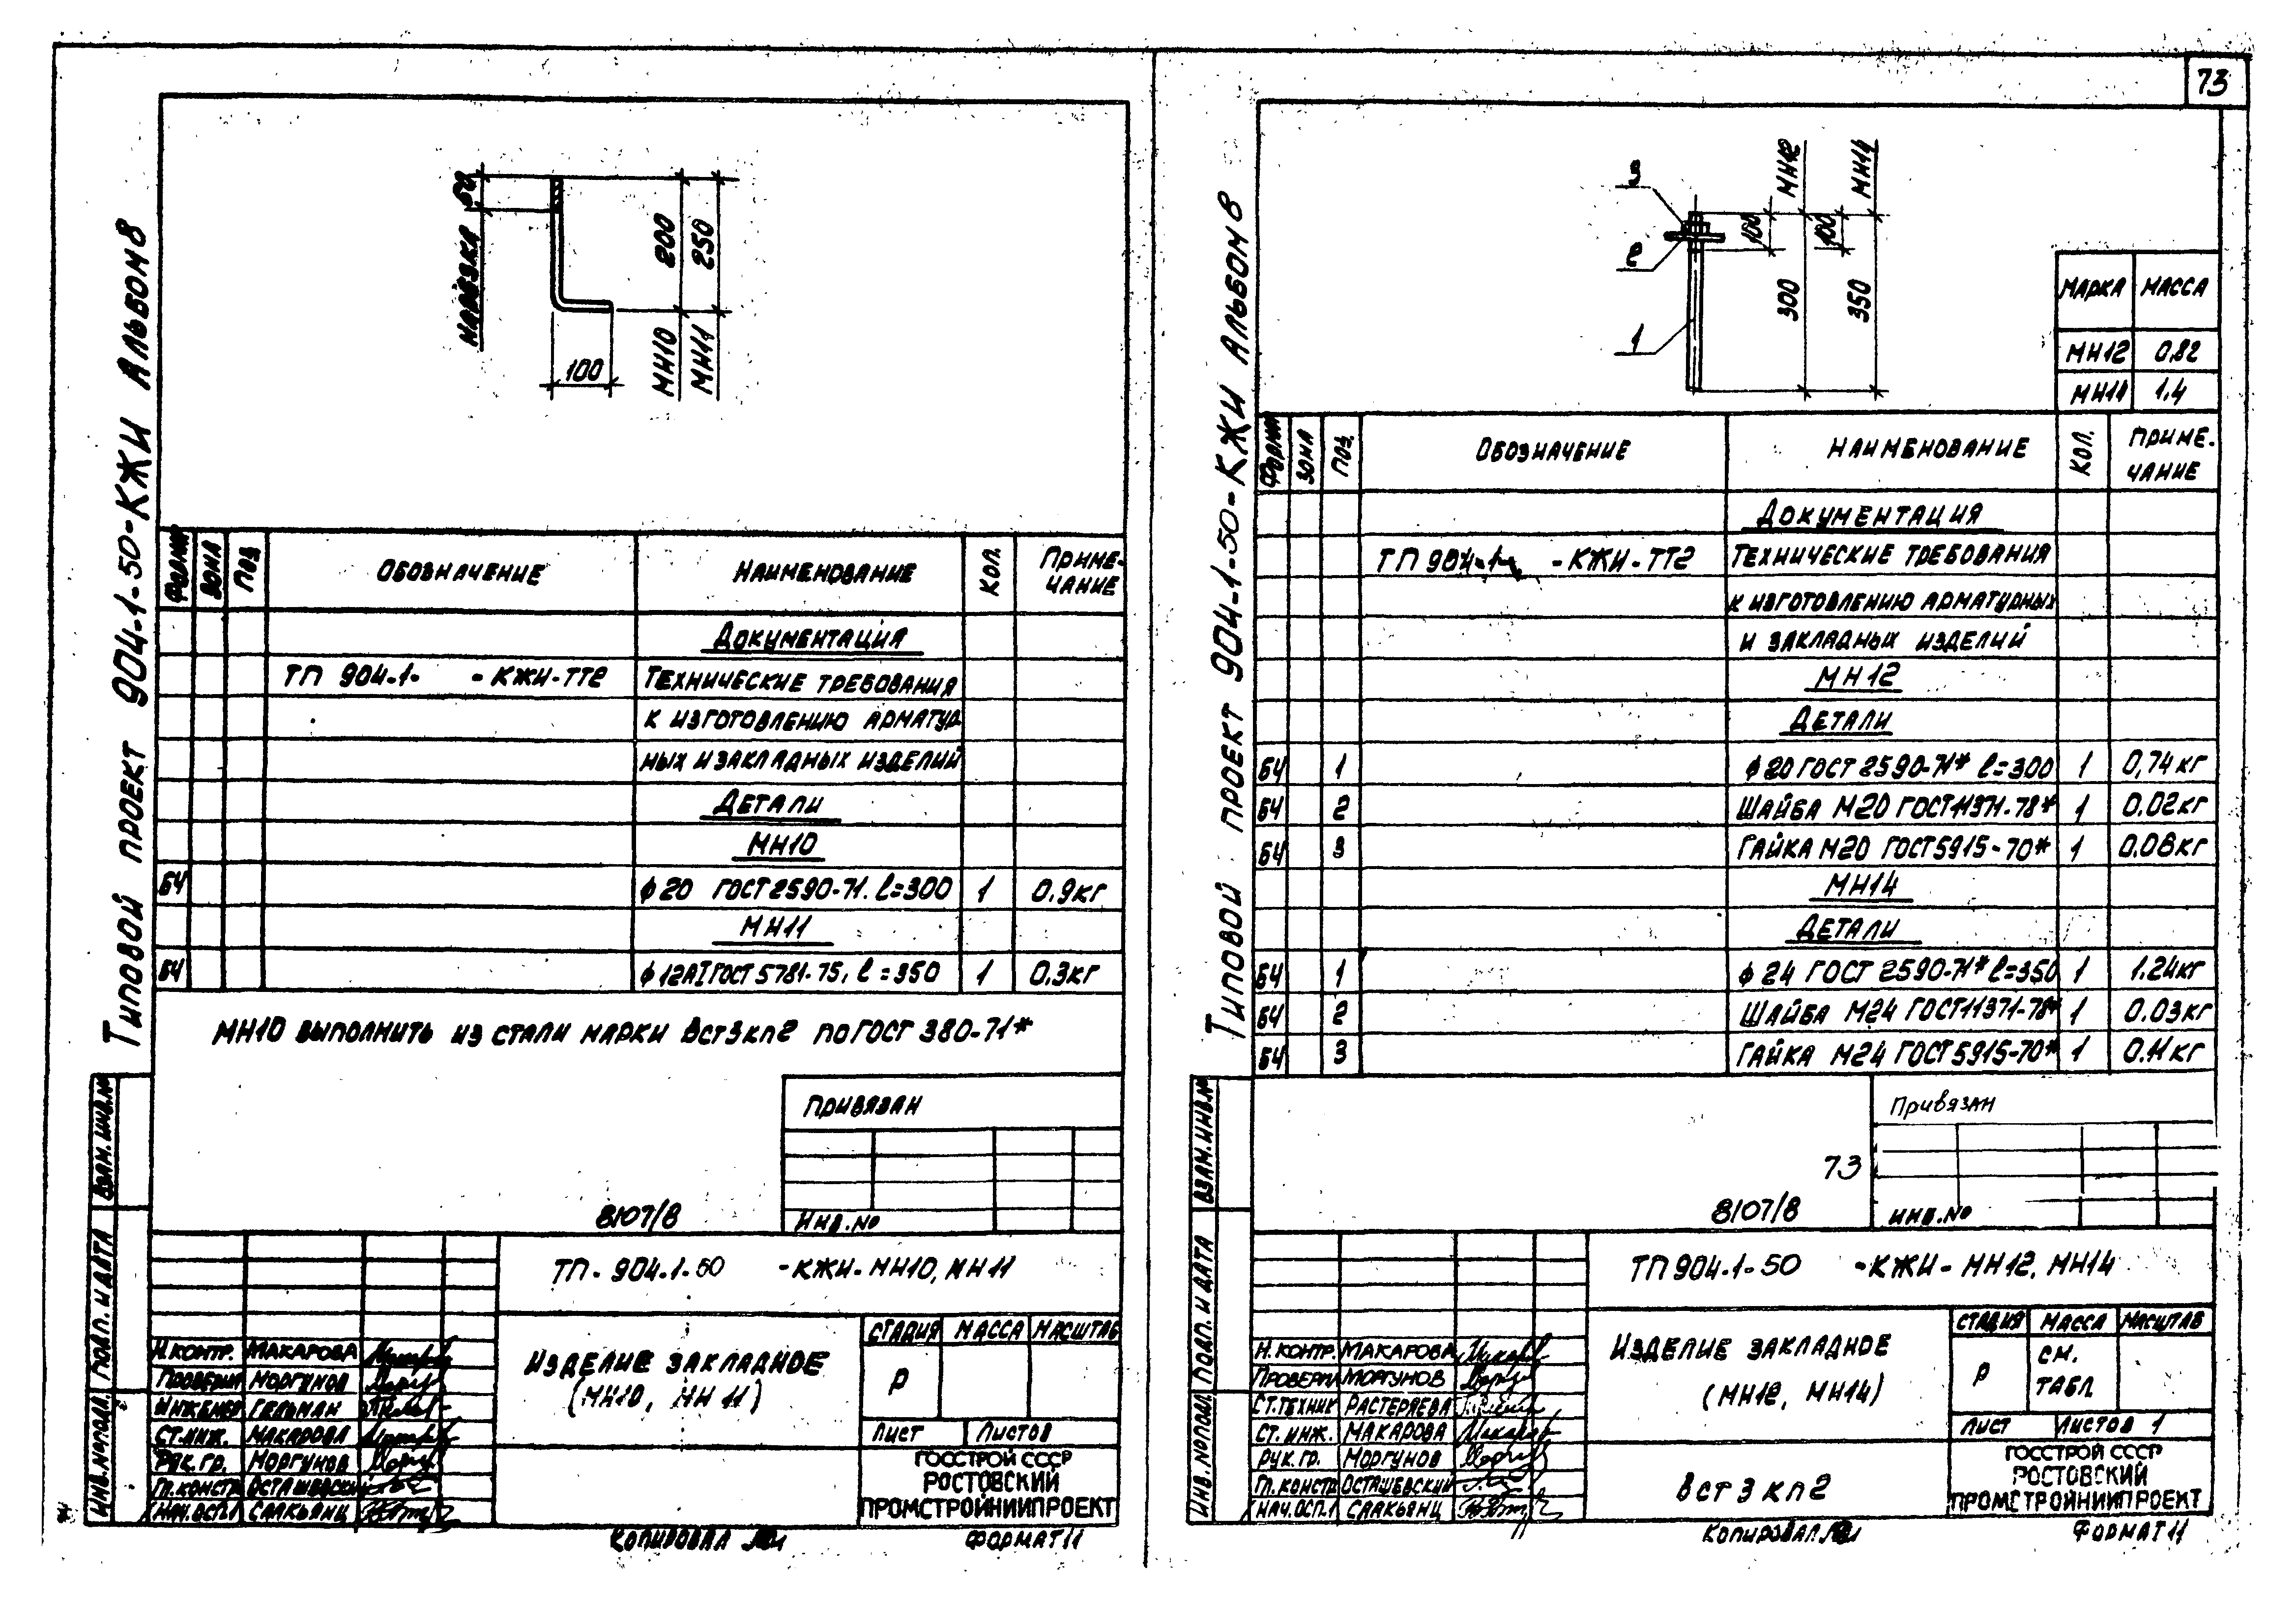 73
Типовой проект 904-1-50-КЖИ Альбом 8
Нарезка 50
200
250
МН10
МН11
100
Формат
Зона
Поз
Обозначение
Наименование
Кол.
Приме-
чание
Документация
ТП 904-1- -КЖИ-ТТ2 Технические требования
к изготовлению арматур
ных и закладных изделий
Детали
МН10
БЧ ф20 ГОСТ 2590-71. l=300 1 0.9кг
МН11
БЧ ф12АI ГОСТ 5781-75, l=350 1 0.3кг
МН10 выполнить из стали марки Вст3кп2 по ГОСТ 380-71*
Привязан
8107/8
Инв.№
Взам. инв.№
Подп. и дата
Инв.№подл.
ТП- 904-1-50 -КЖИ-МН10, МН11
Н.контр. Макарова
Проверил Моргунов
Инженер Гельман
Ст.инж. Макарова
Рук.гр. Моргунов
Гл.констр Осташевский
Нач.осп.1 Саакьянц
Изделие закладное
(МН10, МН11)
Стадия Масса Масштаб
Р
Лист Листов
Госстрой СССР
Ростовский
Промстройниипроект
Копировал
Формат 11
Типовой проект 904-1-50-КЖИ Альбом 8
3
2
1
МН12
МН14
100
100
300
350
Марка Масса
МН12 0,82
МН14 1,4
Формат
Зона
Поз.
Обозначение
Наименование
Кол.
Приме-
чание
Документация
ТП 904-1- -КЖИ-ТТ2 Технические требования
к изготовлению арматурных
и закладных изделий
МН12
Детали
БЧ 1 ф20 ГОСТ 2590-71* l=300 1 0,74кг
БЧ 2 Шайба М20 ГОСТ11371-78* 1 0.02кг
БЧ 3 Гайка М20 ГОСТ5915-70* 1 0.08кг
МН14
Детали
БЧ 1 ф24 ГОСТ 2590-71* l=350 1 1.24кг
БЧ 2 Шайба М24 ГОСТ11371-78* 1 0.03кг
БЧ 3 Гайка М24 ГОСТ5915-70* 1 0.11кг
Привязан
73
8107/8
Инв.№
Взам.инв.№
Подп. и дата
Инв.№подл.
ТП 904-1-50 -КЖИ-МН12, МН14
Н.контр. Макарова
Проверил Моргунов
Ст.техник Растеряева
Ст. инж. Макарова
Рук.гр. Моргунов
Гл.констр Осташевский
Нач.осп.1 Саакьянц
Изделие закладное
(МН12, МН14)
Вст3кп2
Стадия Масса Масштаб
Р см.
табл
Лист Листов 1
Госстрой СССР
Ростовский
Промстройниипроект
Копировал
Формат 11